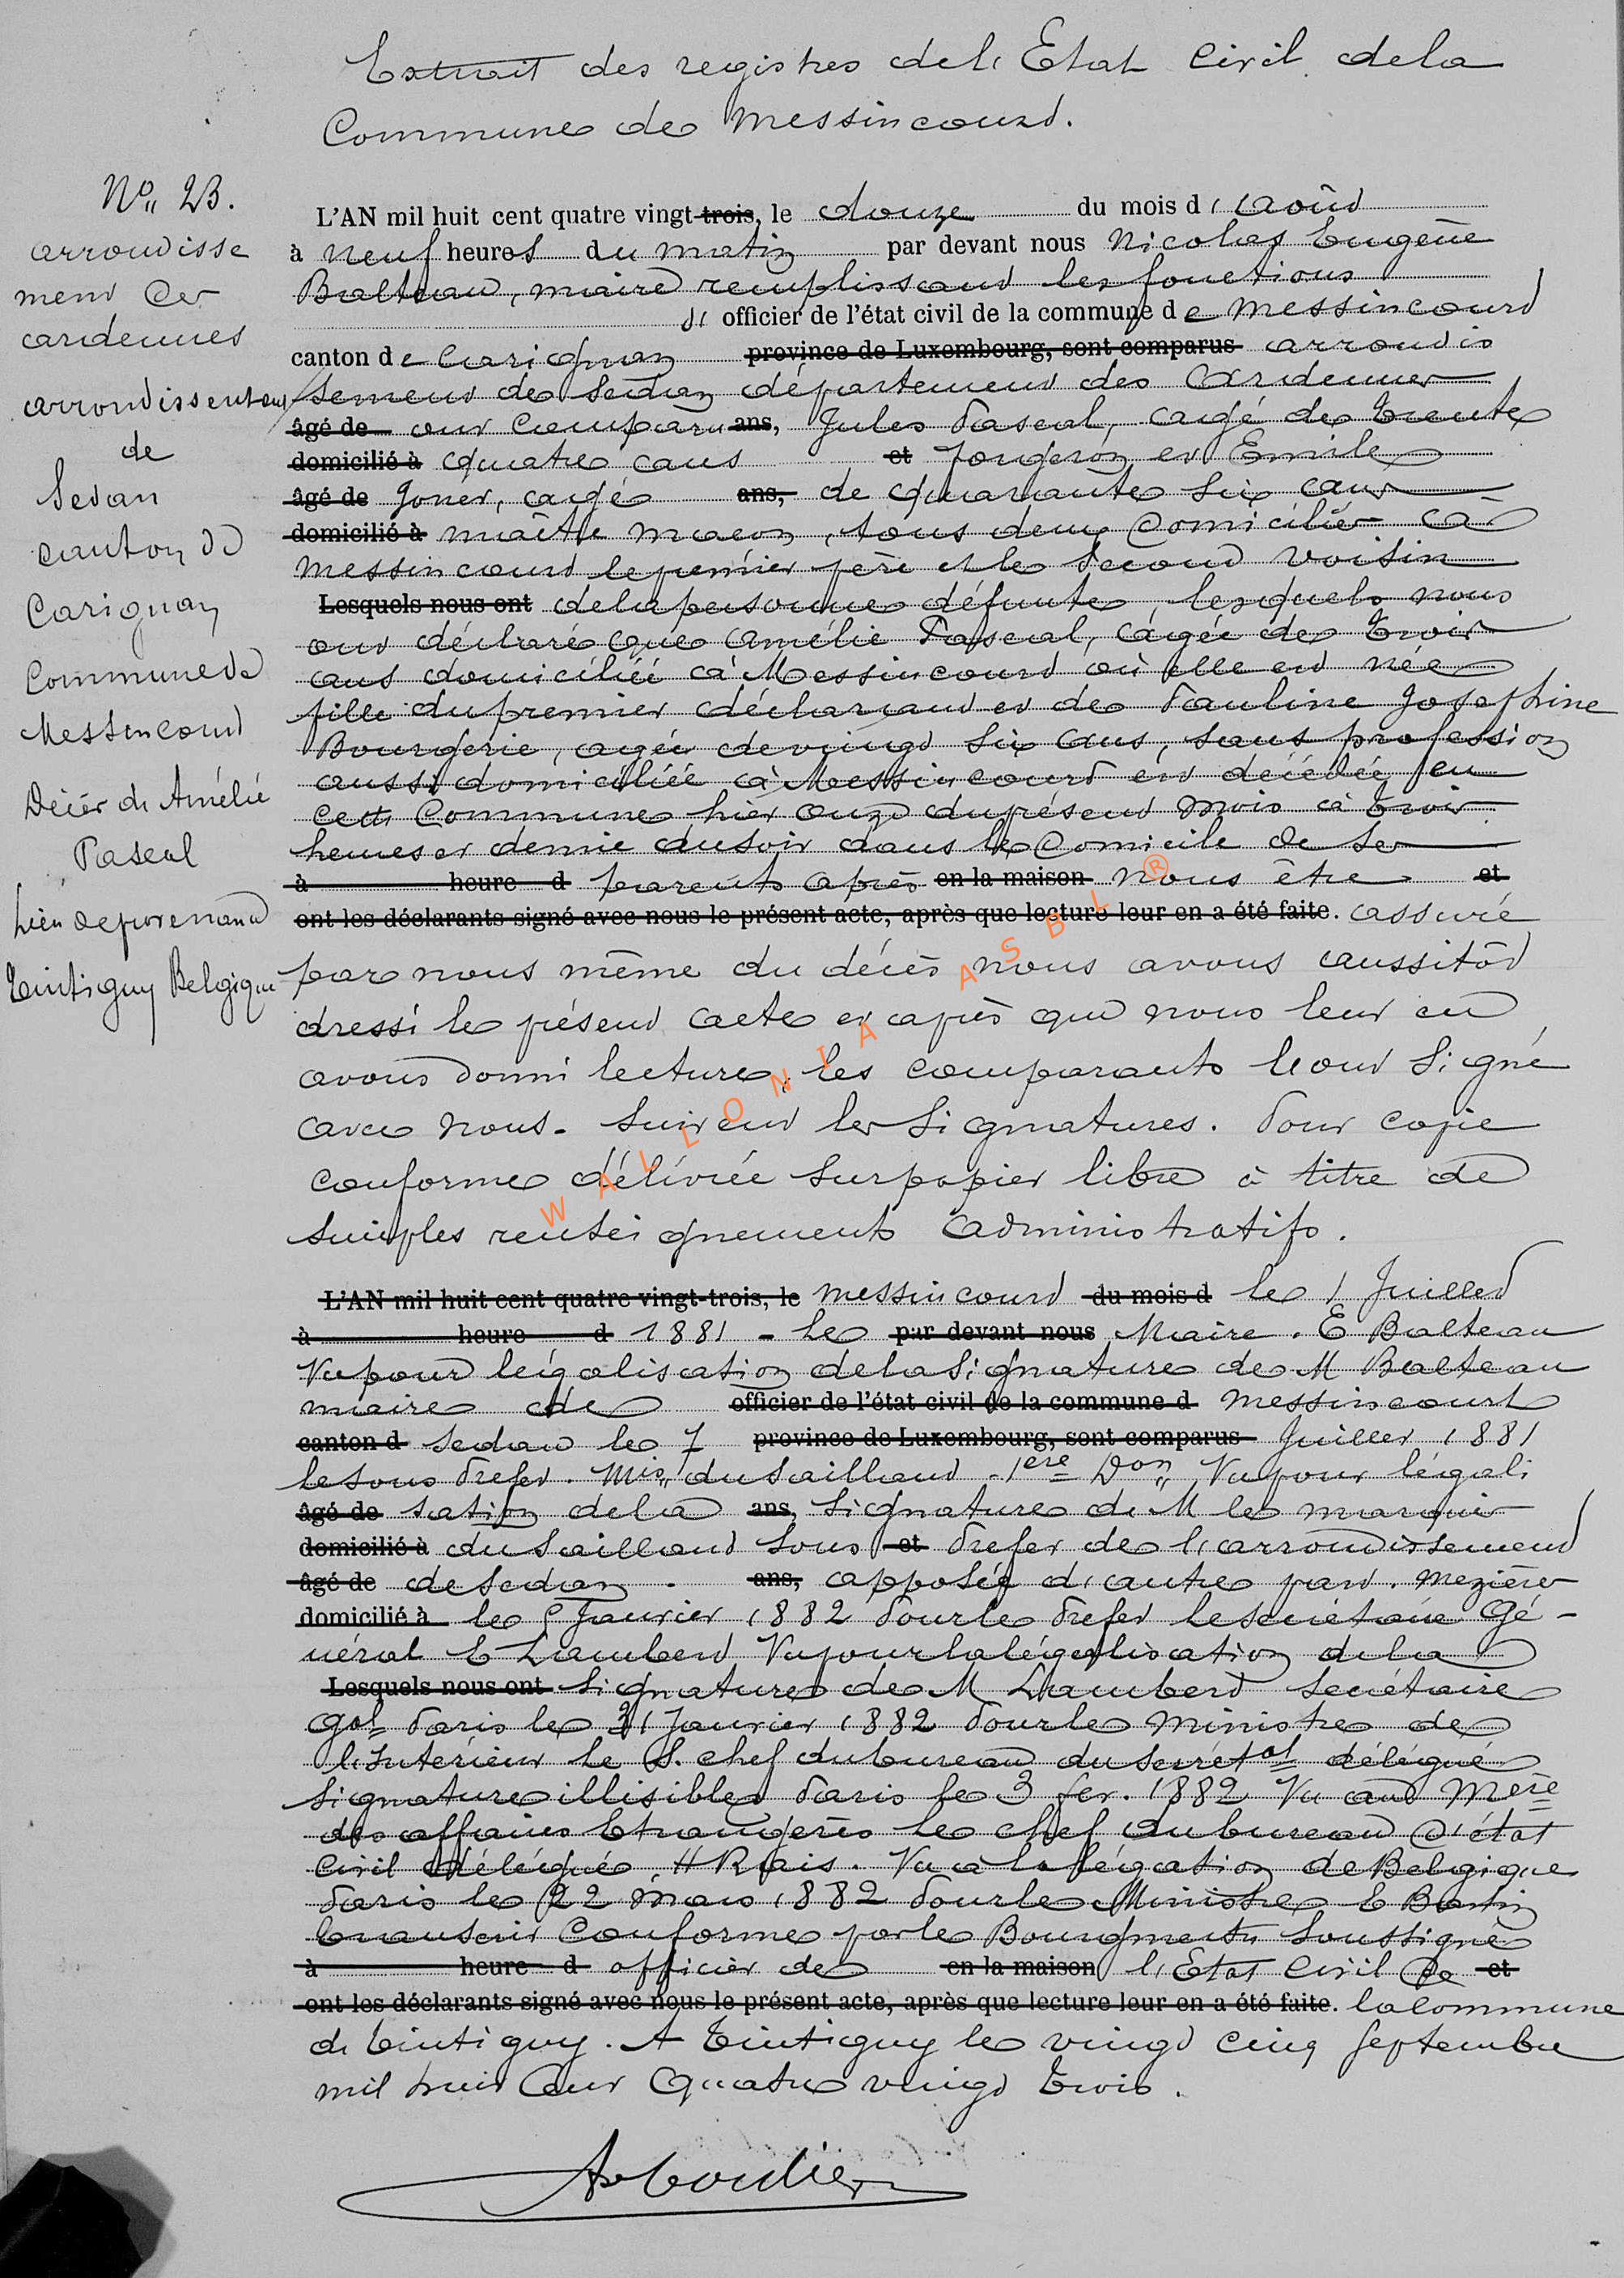 Extrait des registres de l'Etat Civil de la
Commune de Messincourt.
No. 23.
arrondisse
ment des
ardennes
arrondissement
de
Sedan
canton de
Carignan
Commune de
Messincourt
Décès de Amélie
Pascal
Lieu de provenance
Tintigny Belgique
L'AN mil huit cent quatre vingt trois, le douze du mois d'Août
à neuf heures du matin par devant nous Nicolas Eugène
Balteau, maire remplissant les fonctions
d'officier de l'état civil de la commune de Messincourt
canton de Carignan province de Luxembourg, sont comparus arrondis
sement de Sedan département des Ardennes
âgé de ont comparu ans, Jules Pascal, agé de trente
domicilié à quatre ans et forgeron et Emile
âgé de Goner, agé ans, de quarante six ans
domicilié à maître maçon, tous deux domiciliés à
Messincourt le premier père et le second voisin
Lesquels nous ont de la personne défunte, lesquels nous
ont déclaré que Amélie Pascal, agée de trois
ans domiciliée à Messincourt où elle est née
fille du premier déclarant et de Pauline Josephine
Bourgerie, agée de vingt six ans, sans profession
aussi domiciliée à Messincourt est décédée en
cette Commune hier onze du présent mois à trois
heures et demie du soir dans le domicile de ses
à heure d parents après en la maison nous être et
ont les déclarants signé avec nous le présent acte, après que lecture leur en a été faite. assuré
par nous même du décès nous avons aussitôt
dressé le présent acte et après que nous leur en
avons donné lecture, les comparants l'ont signé
avec nous. Suivent les signatures. Pour copie
conforme délivrée sur papier libre à titre de
simples renseignements administratifs.
L'AN mil huit cent quatre vingt-trois, le Messincourt du mois d le 1 Juillet
à heure d 1881 - Le par devant nous Maire. E Balteau
Vu pour légalisation de la signature de M Balteau
maire de officier de l'état civil de la commune d Messincourt
canton d Sedan le 7 province de Luxembourg, sont comparus Juillet 1881
le sous Prefet. Mis du Saillant - 1ere Don Vu pour légali
âgé de sation de la ans, signature de M le marquis
domicilié à du Saillant sous et Prefet de l'arrondissement
âgé de de Sedan. ans, apposée d'autre part. Mezières
domicilié à le 5 Janvier 1882 Pour le Prefet le secrétaire Gé-
néral E Lambert Vu pour la légalisation de la
Lesquels nous ont signature de M Lambert secrétaire
Gal Paris le 31 Janvier 1882 Pour le Ministre de
l'Intérieur le S. chef du bureau du Secrétat délégué
signature illisible Paris le 3 fer. 1882 Vu au Mere
des affaires Etrangères le chef du bureau d'état
Civil délégué H Rais. Vu à la légation de Belgique
Paris le 22 mars 1882 Pour le Ministre E Bastin
Transcrit Conforme par le Bourgmestre soussigné
à heure d officier de en la maison l'Etat Civil de et
ont les déclarants signé avec nous le présent acte, après que lecture leur en a été faite. la Commune
de Tintigny. A Tintigny le vingt cinq Septembre
mil huit cent quatre vingt trois.
WALLONIA ASBL ®